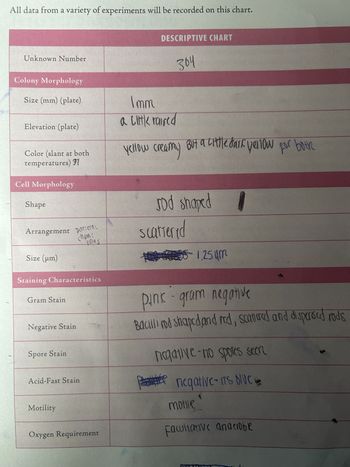 All data from a variety of experiments will be recorded on this chart.
DESCRIPTIVE CHART
Unknown Number 304
Colony Morphology
Size (mm) (plate) 1mm
Elevation (plate) a little raised
Color (slant at both temperatures) yellow creamy But a little dark yellow for both
Cell Morphology
Shape rod shaped
Arrangement scattered
Size (µm) 1.25 µm
Staining Characteristics
Gram Stain pink - gram negative
Negative Stain Bacilli rod shaped and red, scattered and dispersed rods
Spore Stain negative - no spores seen
Acid-Fast Stain negative - its blue
Motility motile
Oxygen Requirement anaerobe